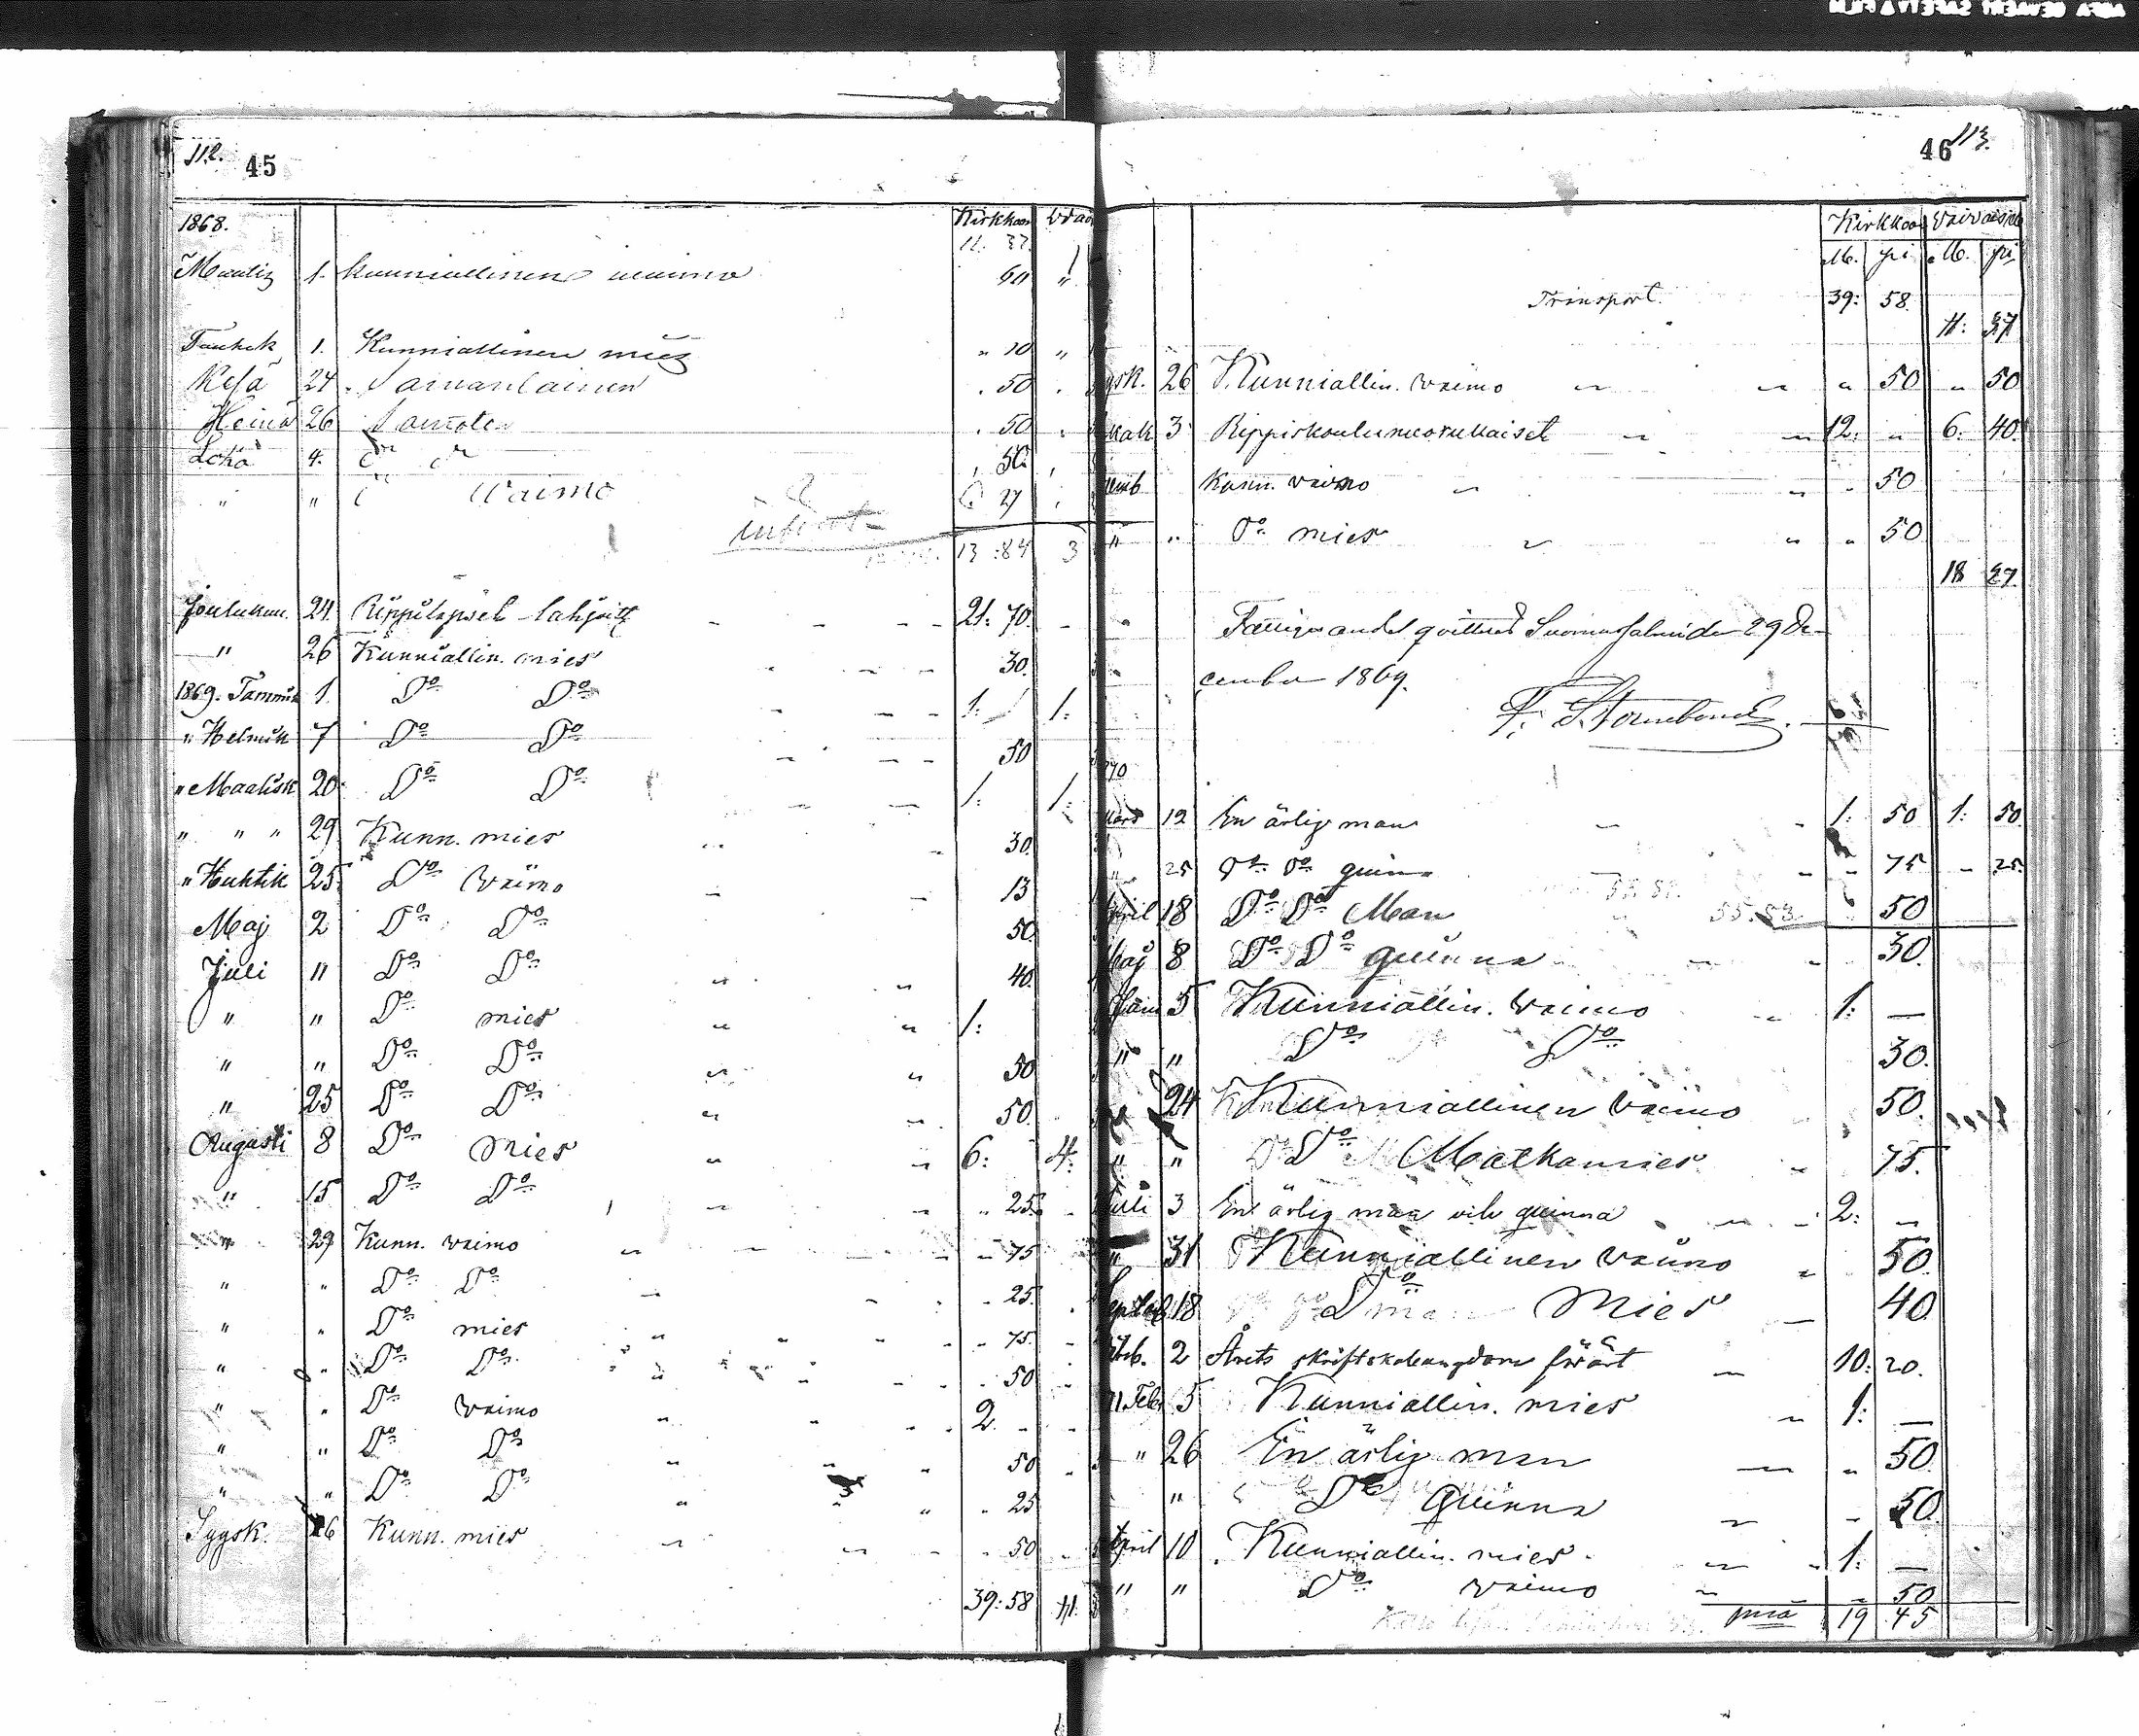 112. 45
1868. Kirkkoon
11. 37.
1. kunniallinen waimo 60 "
1. Kunniallinen mies " 10 "
Kesä 24 . Samanlainen . 50 .
Heinä 26 . 50
Loka 4. 50
" " Waimo 27
13:84 3
Joulukuu. 24. 21:70.
" 26 Kunniallin. mies 30.
1869. Tammik 1. Do Do 1: 1:
" Helmik 7 Do Do 50
" Maalisk 20 Do Do 1: 1:
" " " 29 Kunn. mies 30.
" Huhtik 25 Do Waimo 13
Maj 2 Do Do 50.
Juli 11 Do Do 40.
" " Do mies 1:
" " Do Do 50
" 25 Do Do 50.
Augusti 8 Do Mies 6: 4:
" 15 Do Do " 25.
" 29 Kunn. waimo " 75
" " Do Do . 25.
" " Do mies " 75.
" " Do Do . 50
" " Do waimo 2.
" " Do Do 50
" " Do Do . 25
Sygsk. 26 Kunn. mies . 50
39:58 11:
46 113.
Kirkkoon
M. pi M. pi
Transport. 39: 58.
11: 37
sk. 26 Kunniallin. waimo " 50 " 50
kak 3 Rippiskoulunuorukaiset 12: " 6: 40.
Kunn. waimo " 50
" " Do mies " 50
18 27.
Fattigas andel qvitteras Suomussalmi den 29 De-
cember 1869.
70
Mars 12 En ärlig man 1: 50 1: 50.
" 25 Do Do quinna " 75 " 25.
April 18 Do Do Man 55.53. 50
Maj 8 Do Do quinna 30.
5 Kunniallin. Waimo 1: —
" " Do Do 30.
24 Kunniallinen Waimo 50.
" " Do Matkamies 75.
Juli 3 En ärlig man och quinna 2: "
" 31 Kunniallinen waimo 50.
18 Do Mies 40
2 Årets 10: 20.
71. Feb. 5 Kunniallin. mies 1: —
" 26 En ärlig man " 50.
" Do Quinna " 50.
April 10 . Kunniallin. mies 1: —
" " Do waimo " 50
19 45